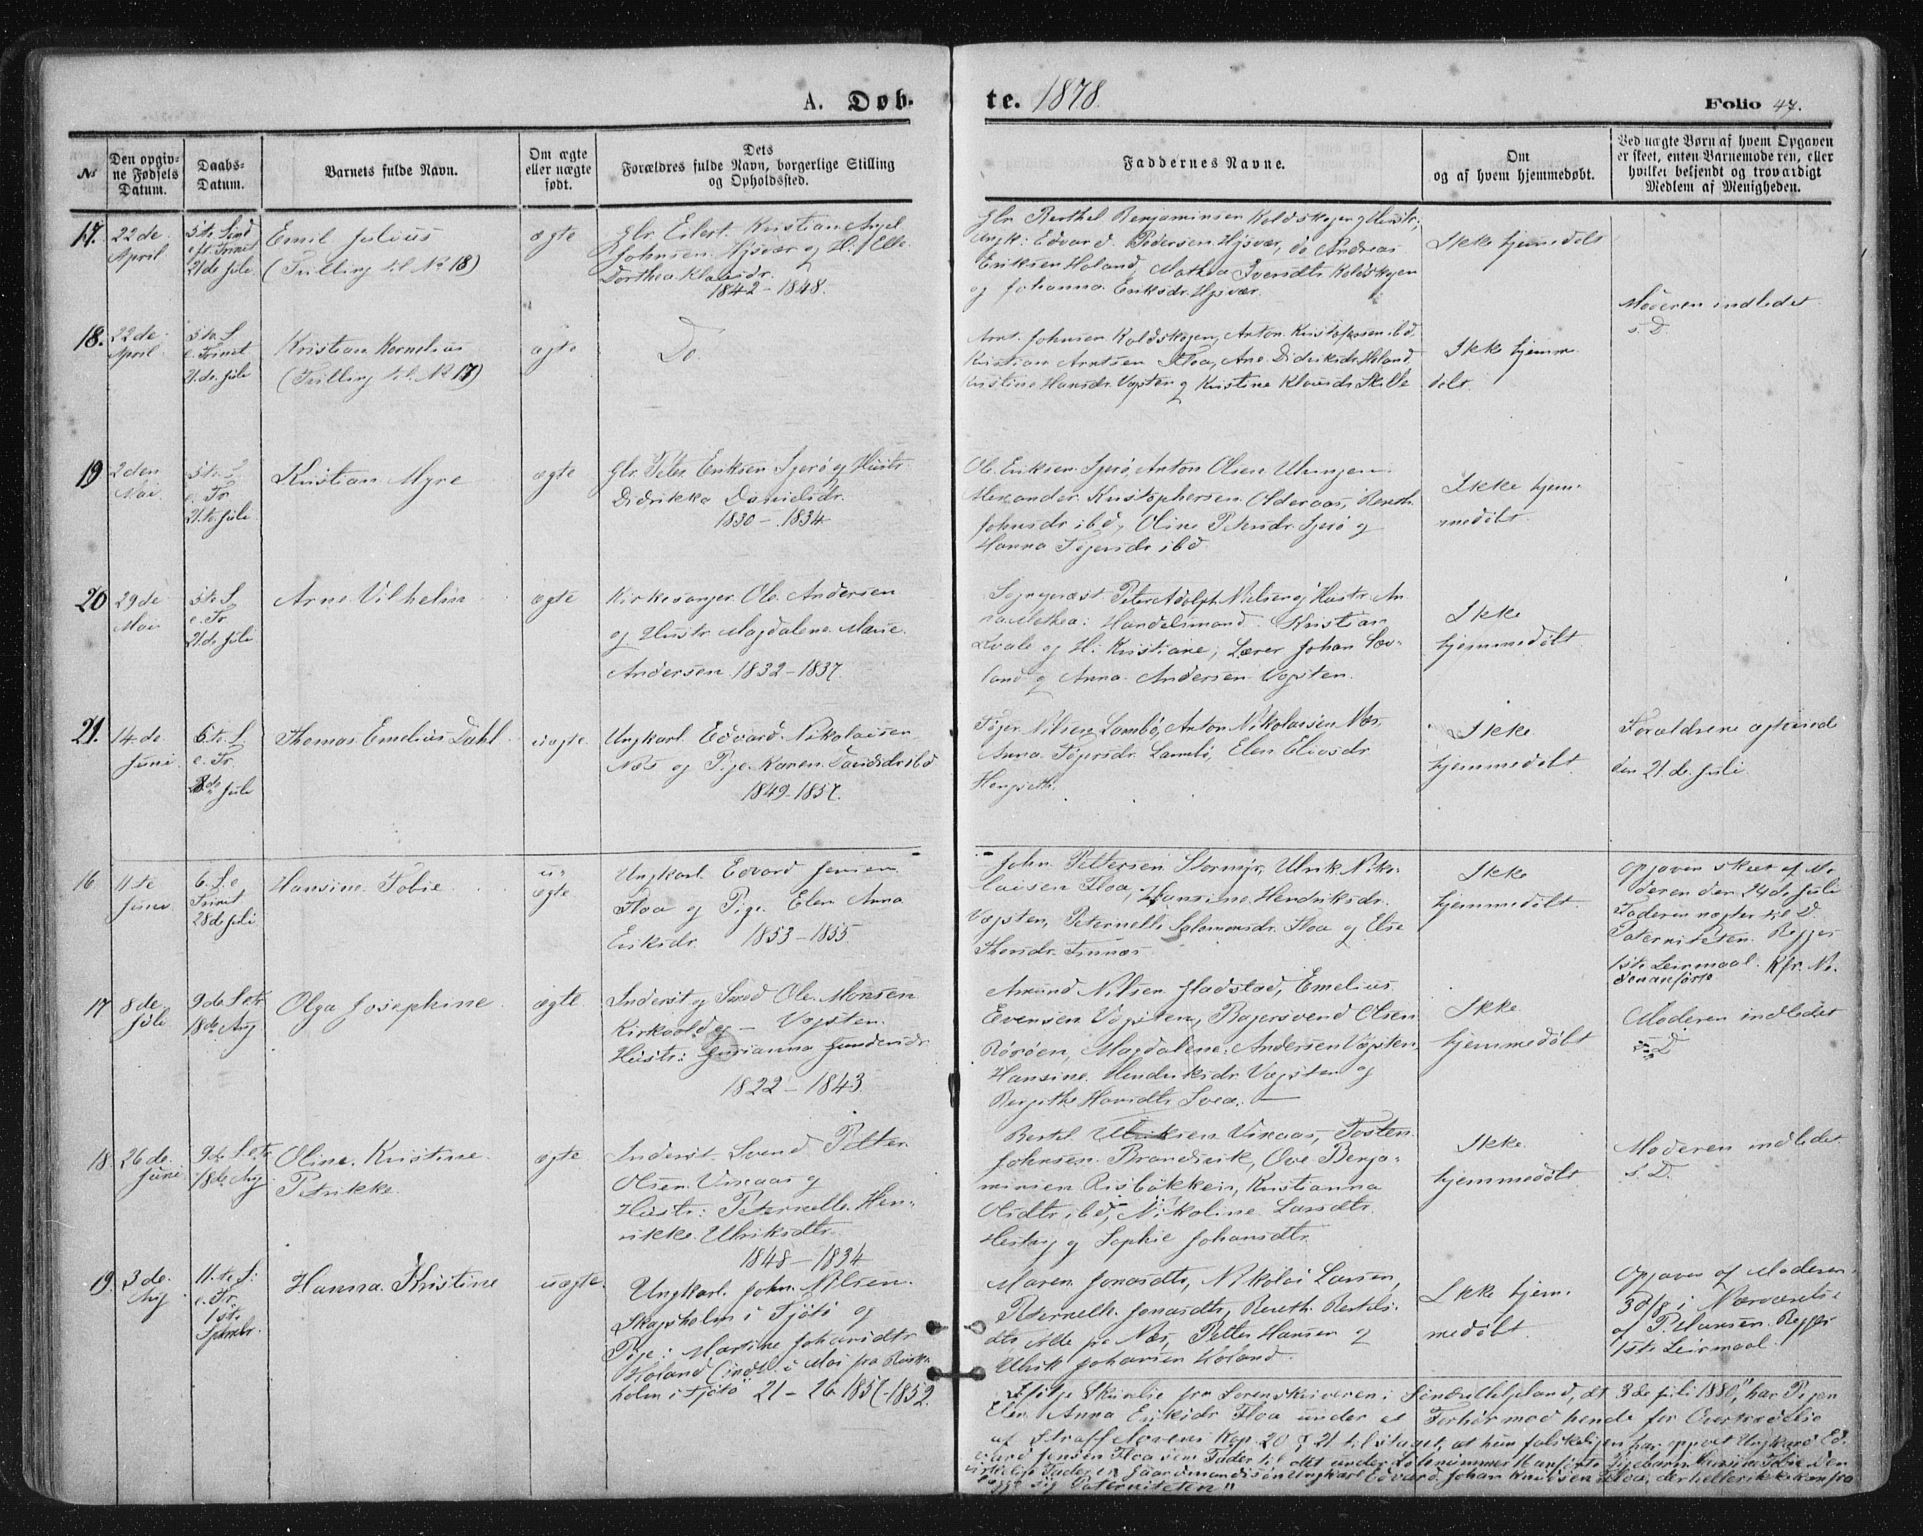 A. Døb-
te. 1878.
Folio 47.
№
Den opgiv-
ne Fødsels
Datum.
Daabs-
Datum.
Barnets fulde Navn.
Om ægte
eller uægte
født.
Dets
Forældres fulde Navn, borgerlige Stilling
og Opholdssted.
Faddernes Navne.
Om
og af hvem hjemmedøbt.
Ved uægte Børn af hvem Opgaven
er skeet, enten Barnemoderen, eller
hvilket bekjendt og troværdigt
Medlem af Menigheden.
17.
22de
April
5te Sønd
e. Trinit
21de Juli
Emil Julius
(Tvilling til No 18)
ægte
Gbr Eilert Kristian Angel
Johnsen Hysvær og H.
Dorthea Klausdr.
1842-1848.
Gbr Berthel Benjaminsen Koldskogen og Hustr,
Ungk: Edvard Pedersen Hysvær, do Andreas
Eriksen Holand, Mathea Iversdtr Koldskogen
og Johanna Eriksdr. Hysvær.
Ikke hjemmedøbt
Moderen indledet
s. D.
18.
22de
April
5te S.
e. Trinit
21.de Juli
Kristian Kornelius
(Tvilling til No 17)
ægte
Do
Arnt Johnsen Koldskogen, Anton Kristofersen ibd,
Kristian Arntsen Floa, Ane Didriksdr Holand
Kristine Hansdr. Vægsten og Kristine Klausdr Skille
Ikke hjemme-
døbt
19
2den
Mai
5te S.
e. Tr.
21de Juli
Kristian Myre
ægte
Gbr Peter Eriksen og Hustr
Didrikka Danielsdr.
1830-1834
Ole Eriksen, Anton Olsen
Alexander Kristophersen Olderaas, Bereth
Johnsdr ibd, Oline Petersdr og
Hanna ibd.
Ikke hjem-
medøbt.
20
29de
Mai
5te S.
e. Tr.
21.de Juli
Arne Vilhelm
ægte
Kirkesanger Ole Andersen
og Hustr Magdalene Marie
Andersen 1832-1837.
Sogneprest Peter Adolph Nielsen og Hustr An
na Methea; Handelsmand Kristian
Qvale og H. Kristiane, Lærer Johan
og Anna Andersen Vægsten.
Ikke
hjemmedøbt
21.
14.de
Juni
6te S.
e. Tr.
28de Juli
Thomas Emelius Dahl
uægte
Ungkarl Edvard Nikolaisen
Næs og Pige Karen Davidsdr ibd
1849-1857.
Nilsen Lambø, Anton Nikolaisen Næs
Anna Lambø, Elen Eliasdr
Ikke
hjemmedøbt
Forældrene
den 21.de Juli
16.
11te
Juni
6. S. e
Trinit
28de Juli
Hansine Tobie
u-
ægte
Ungkarl Edvard Jensen
Floa og Pige Elen Anna
Eriksdr. 1853-1855.
John Pettersen Stormyr, Ulrik Niko-
laisen Floa, Hansine Hendriksdr.
Vægsten, Peternelle Salomonsdr. Floa og Else
Ikke
hjemmedøbt
Opgaven skeet af Mo-
deren den 24de Juli
Faderen nægter til D.
Paterniteten. Begges
1ste Leiermaal. Kfr. Ne-
denanførte
17
8de
Juli
9de S. e. Tr.
18de Aug
Olga Josephine
ægte
Inderst og Smed Ole Monsen
Kirkvold og Vægsten
Hustr: Gurianna
1822-1843.
Amund Nilsen Hadstad, Emelius
Evensen Vægsten, Bagersvend Olsen
Rørøen, Magdalene Andersen Vægsten,
Hansine Hendriksdr Vægsten og
Hansdtr
Ikke
hjemmedøbt
Moderen indledet
s. D
18
26de
Juni
9de S. e. Tr.
18de Aug
Oline Kristine
Petrikke.
ægte
Inderst Svend Petter
Olsen og
Hustr: Peternelle Hen-
rikke Ulriksdtr
1848-1834
Bertel Ulriksen, Tosten
Johnsen Brandsvik, Ove Benja-
minsen Risbakken, Kristianna
Olsdtr ibd, Nikoline Larsdtr
og Sophie Johansdtr.
Ikke
hjemmedøbt
Moderen indledet
s. D.
19.
3de
Aug
11.te S.
e. Tr.
1ste
Septbr.
Hanna Kristine
uægte
Ungkarl John Nilsen
i Tjøtø og
Pige: Martine Johansdtr
Holand (indt. i Mai fra
holm i Tjøtø 21-26 1857-1852.
Maren Jonasdtr, Nikolai Larsen,
Peternelle Jonasdtr, Bereth Bertels-
dtr Alle på Næs, Petter Hansen og
Ulrik Johansen Holand.
Ikke hjem-
medøbt
Opgaven af Moderen
3d/8 i Nærværelse
af P. Hansen. Begges
1ste Leiermaal.
Ifølge Skrivelse fra Sorenskriveren i Søndre Helgeland, dt. 3de Juli 1880, "har Pigen
Elen Anna Eriksdr Floa under et Forhør mod hende for Overtrædelse
af Straffelovens Kap. 20 § 21 tilstaaet, at hun falskeligen har opgivet Ungkarl Ed-
vard Jensen Floa som Fader til det under Løbenummer 16 anførte Pigebarn Hansine Tobie. Den
virkelige Fader er Gaardmandssøn Ungkarl Edvard Johan Knudsen Floa, der heller ikke kan fra-
lægge sig Paterniteten"